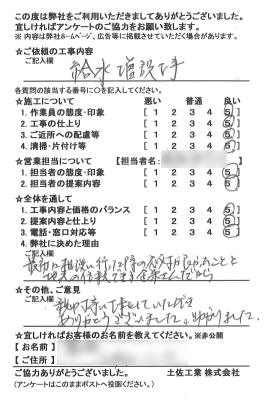 この度は弊社をご利用いただきましてありがとうございました。
宜しければアンケートのご協力をお願い致します。
※ 内容は弊社ホームページ、広告等に掲載させていただく場合があります。
★ご依頼の工事内容
ご記入欄
給水増設工事
各質問の該当する番号に〇を記入してください。
★施工について 悪い 普通 良い
1. 作業員の態度・印象 [ 1 2 3 4 5 ]
2. 工事の仕上り [ 1 2 3 4 5 ]
3. ご近所への配慮等 [ 1 2 3 4 5 ]
4. 清掃・片付け等 [ 1 2 3 4 5 ]
★営業担当について 【担当者名: 】
1. 担当者の態度・印象 [ 1 2 3 4 5 ]
2. 担当者の提案内容 [ 1 2 3 4 5 ]
★全体を通して
1. 工事内容と価格のバランス [ 1 2 3 4 5 ]
2. 提案内容と仕上り [ 1 2 3 4 5 ]
3. 電話・窓口対応等 [ 1 2 3 4 5 ]
4. 弊社に決めた理由
ご記入欄
最初に相談に行った時の対応が良かったことと
地元の信頼できる企業さんだから
★その他、ご意見
ご記入欄
丁寧に工事をしていただき
ありがとうございました。助かりました。
★宜しければお客様のお名前を教えてください。※非公開
【 お名前 】
【 ご住所 】
ご協力ありがとうございました。 土佐工業 株式会社
(アンケートはこのままポストへ投函ください。)